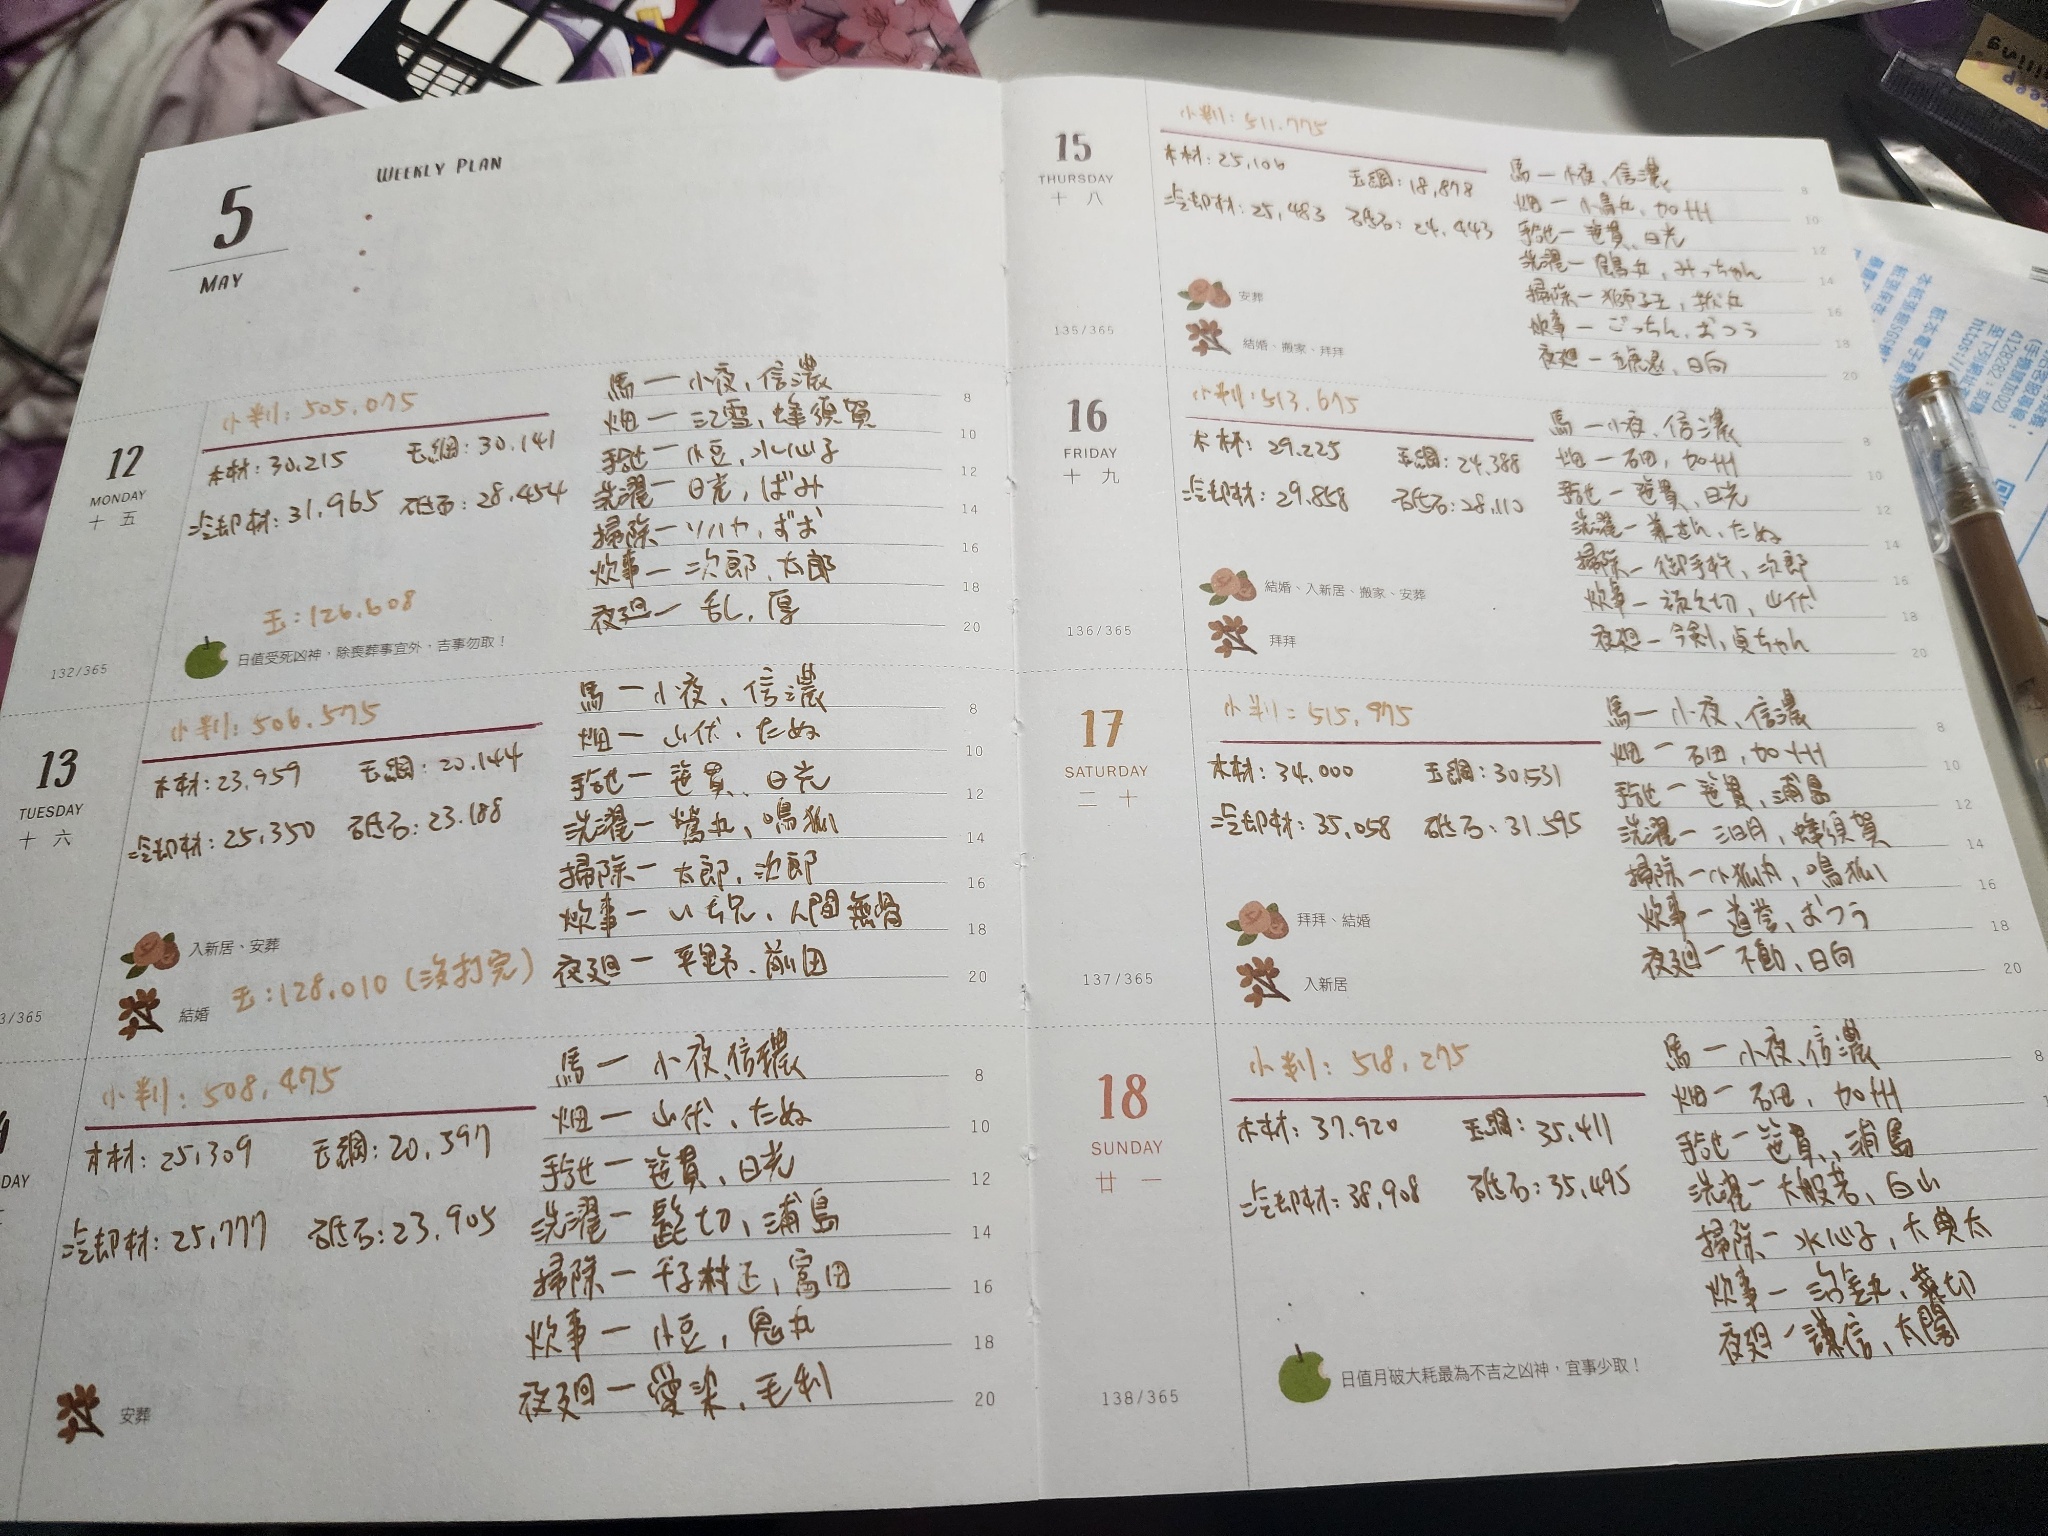 5
MAY
WEEKLY PLAN
12
MONDAY
十五
132/365
小判: 505,075
木材: 30,215 玉鋼: 30,141
冷却材: 31,965 砥石: 28,454
玉: 126,608
日值受死凶神，除喪葬事宜外，吉事勿取！
馬一小夜、信濃
畑一江雪、蜂須賀
手合せ一小豆、水心子
洗濯一日光、ばみ
掃除一ソハヤ、ずお
炊事一次郎、太郎
夜廻一乱、厚
8
10
12
14
16
18
20
13
TUESDAY
十六
3/365
小判: 506,575
木材: 23,959 玉鋼: 20,144
冷却材: 25,350 砥石: 23,188
入新居、安葬
結婚
玉: 128,010 (沒打完)
馬一小夜、信濃
畑一山伏、たぬ
手合せ一笹貫、日光
洗濯一鶯丸、鳴狐
掃除一太郎、次郎
炊事一いち兄、人間無骨
夜廻一平野、前田
8
10
12
14
16
18
20
DAY
小判: 508,475
木材: 25,309 玉鋼: 20,397
冷却材: 25,777 砥石: 23,905
安葬
馬一小夜、信濃
畑一山伏、たぬ
手合せ一笹貫、日光
洗濯一髭切、浦島
掃除一千子村正、富田
炊事一小豆、鬼丸
夜廻一愛染、毛利
8
10
12
14
16
18
20
15
THURSDAY
十八
135/365
小判: 511,775
木材: 25,106 玉鋼: 18,878
冷却材: 25,483 砥石: 24,443
安葬
結婚、搬家、拜拜
馬一小夜、信濃
畑一小烏丸、加州
手合せ一笹貫、日光
洗濯一鶴丸、みっちゃん
掃除一獅子王、
炊事一ごっちん、おつう
夜廻一五虎退、日向
8
10
12
14
16
18
20
16
FRIDAY
十九
136/365
小判: 513,675
木材: 29,225 玉鋼: 24,388
冷却材: 29,858 砥石: 28,110
結婚、入新居、搬家、安葬
拜拜
馬一小夜、信濃
畑一石田、加州
手合せ一笹貫、日光
洗濯一兼さん、たぬ
掃除一御手杵、次郎
炊事一 山伏
夜廻一今剣、貞ちゃん
8
10
12
14
16
18
20
17
SATURDAY
二十
137/365
小判: 515,975
木材: 34,000 玉鋼: 30,531
冷却材: 35,058 砥石: 31,595
拜拜、結婚
入新居
馬一小夜、信濃
畑一石田、加州
手合せ一笹貫、浦島
洗濯一三日月、蜂須賀
掃除一小狐丸、鳴狐
炊事一道誉、おつう
夜廻一不動、日向
8
10
12
14
16
18
20
18
SUNDAY
廿一
138/365
小判: 518,275
木材: 37,920 玉鋼: 35,411
冷却材: 38,908 砥石: 35,495
日值月破大耗最為不吉之凶神，宜事少取！
馬一小夜、信濃
畑一石田、加州
手合せ一笹貫、浦島
洗濯一大般若、白山
掃除一水心子、大典太
炊事一治金丸、
夜廻一謙信、太閤
8